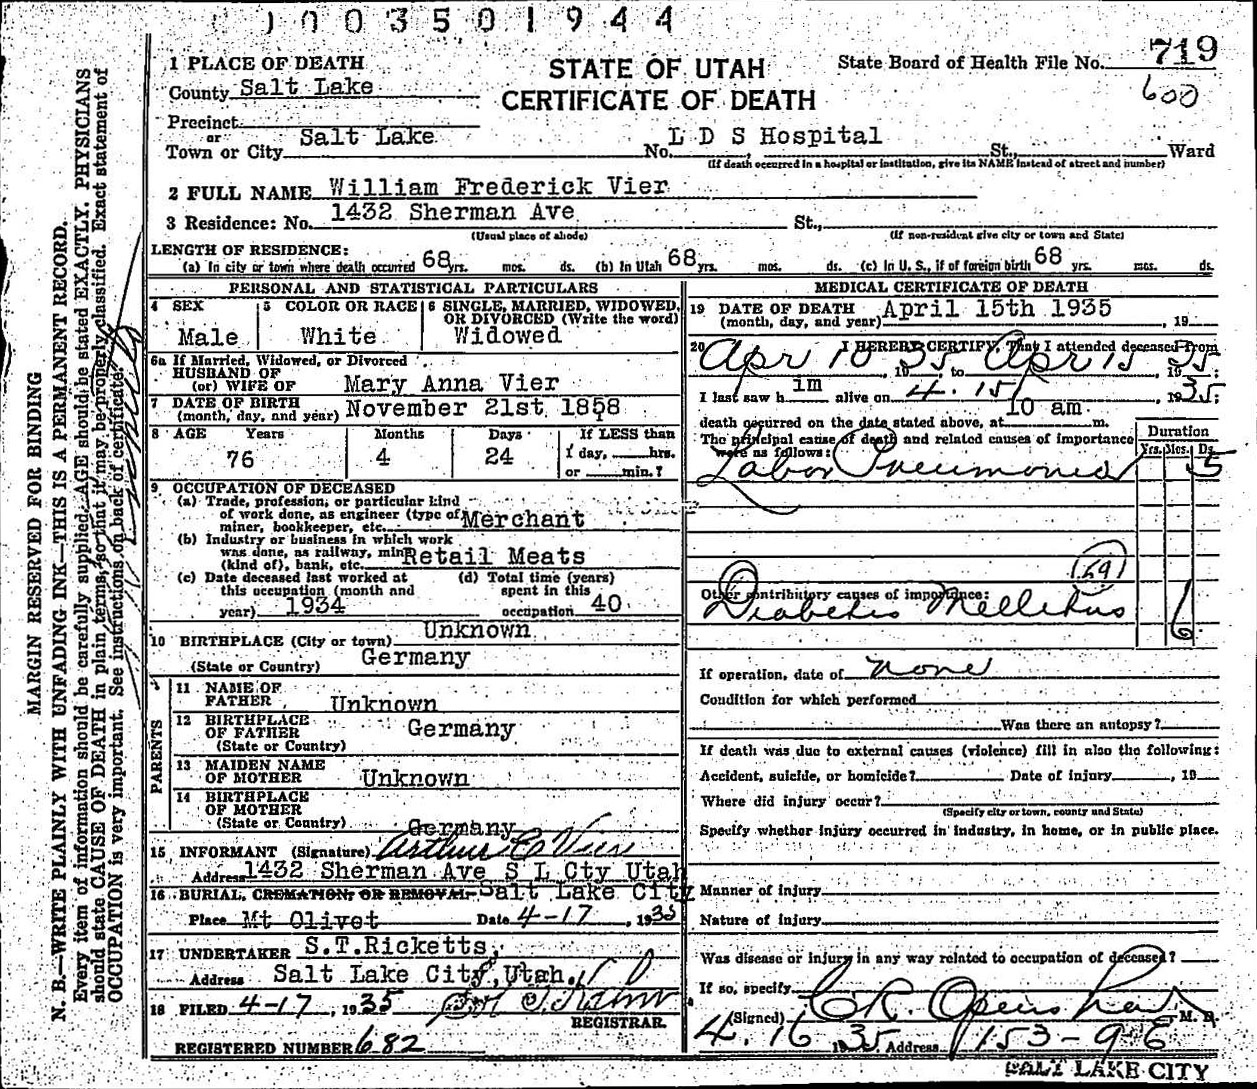 0003501944
1 PLACE OF DEATH
County Salt Lake
Precinct
or
Town or City Salt Lake
STATE OF UTAH
CERTIFICATE OF DEATH
State Board of Health File No. 719
600
No. L D S Hospital St., Ward
(If death occurred in a hospital or institution, give its NAME instead of street and number)
2 FULL NAME William Frederick Vier
3 Residence: No. 1432 Sherman Ave St.,
(Usual place of abode) (If non-resident give city or town and State)
LENGTH OF RESIDENCE:
(a) In city or town where death occurred 68 yrs. mos. ds. (b) In Utah 68 yrs. mos. ds. (c) In U. S., if of foreign birth 68 yrs. mos. ds.
PERSONAL AND STATISTICAL PARTICULARS
4 SEX
Male
5 COLOR OR RACE
White
6 SINGLE, MARRIED, WIDOWED,
OR DIVORCED (Write the word)
Widowed
6a If Married, Widowed, or Divorced
HUSBAND OF
(or) WIFE OF Mary Anna Vier
7 DATE OF BIRTH
(month, day, and year) November 21st 1858
8 AGE Years Months Days If LESS than
76 4 24 1 day, hrs.
or min.?
9 OCCUPATION OF DECEASED
(a) Trade, profession, or particular kind
of work done, as engineer (type of
miner, bookkeeper, etc. Merchant
(b) Industry or business in which work
was done, as railway, min
(kind of), bank, etc. Retail Meats
(c) Date deceased last worked at
this occupation (month and
year) 1934
(d) Total time (years)
spent in this
occupation 40
10 BIRTHPLACE (City or town) Unknown
(State or Country) Germany
PARENTS
11 NAME OF
FATHER Unknown
12 BIRTHPLACE
OF FATHER Germany
(State or Country)
13 MAIDEN NAME
OF MOTHER Unknown
14 BIRTHPLACE
OF MOTHER
(State or Country) Germany
15 INFORMANT (Signature) Arthur C Vier
Address 1432 Sherman Ave S L Cty Utah
16 BURIAL, CREMATION, OR REMOVAL Salt Lake City
Place Mt Olivet Date 4-17, 1935
17 UNDERTAKER S.T.Ricketts,
Address Salt Lake City, Utah.
18 FILED 4-17, 1935
REGISTRAR.
REGISTERED NUMBER 682
MEDICAL CERTIFICATE OF DEATH
19 DATE OF DEATH April 15th 1935
(month, day, and year) , 19
20 I HEREBY CERTIFY, That I attended deceased from
Apr 10, 1935 to Apr 15, 1935;
I last saw h im alive on 4.15, 1935;
death occurred on the date stated above, at 10 am m.
The principal cause of death and related causes of importance
were as follows:
Duration
Yrs. Mos. Ds.
Labor Pneumonia 5
69
Other contributory causes of importance:
Diabetis Mellitus 6
If operation, date of none
Condition for which performed
Was there an autopsy?
If death was due to external causes (violence) fill in also the following:
Accident, suicide, or homicide? Date of injury , 19
Where did injury occur?
(Specify city or town, county and State)
Specify whether injury occurred in industry, in home, or in public place.
Manner of injury
Nature of injury
Was disease or injury in any way related to occupation of deceased?
If so, specify
(Signed) C R Openshaw M. D.
4.16 1935. Address 153-9-E
SALT LAKE CITY
MARGIN RESERVED FOR BINDING
N. B.—WRITE PLAINLY WITH UNFADING INK—THIS IS A PERMANENT RECORD.
Every item of information should be carefully supplied. AGE should be stated EXACTLY. PHYSICIANS
should state CAUSE OF DEATH in plain terms, so that it may be properly classified. Exact statement of
OCCUPATION is very important. See instructions on back of certificate.